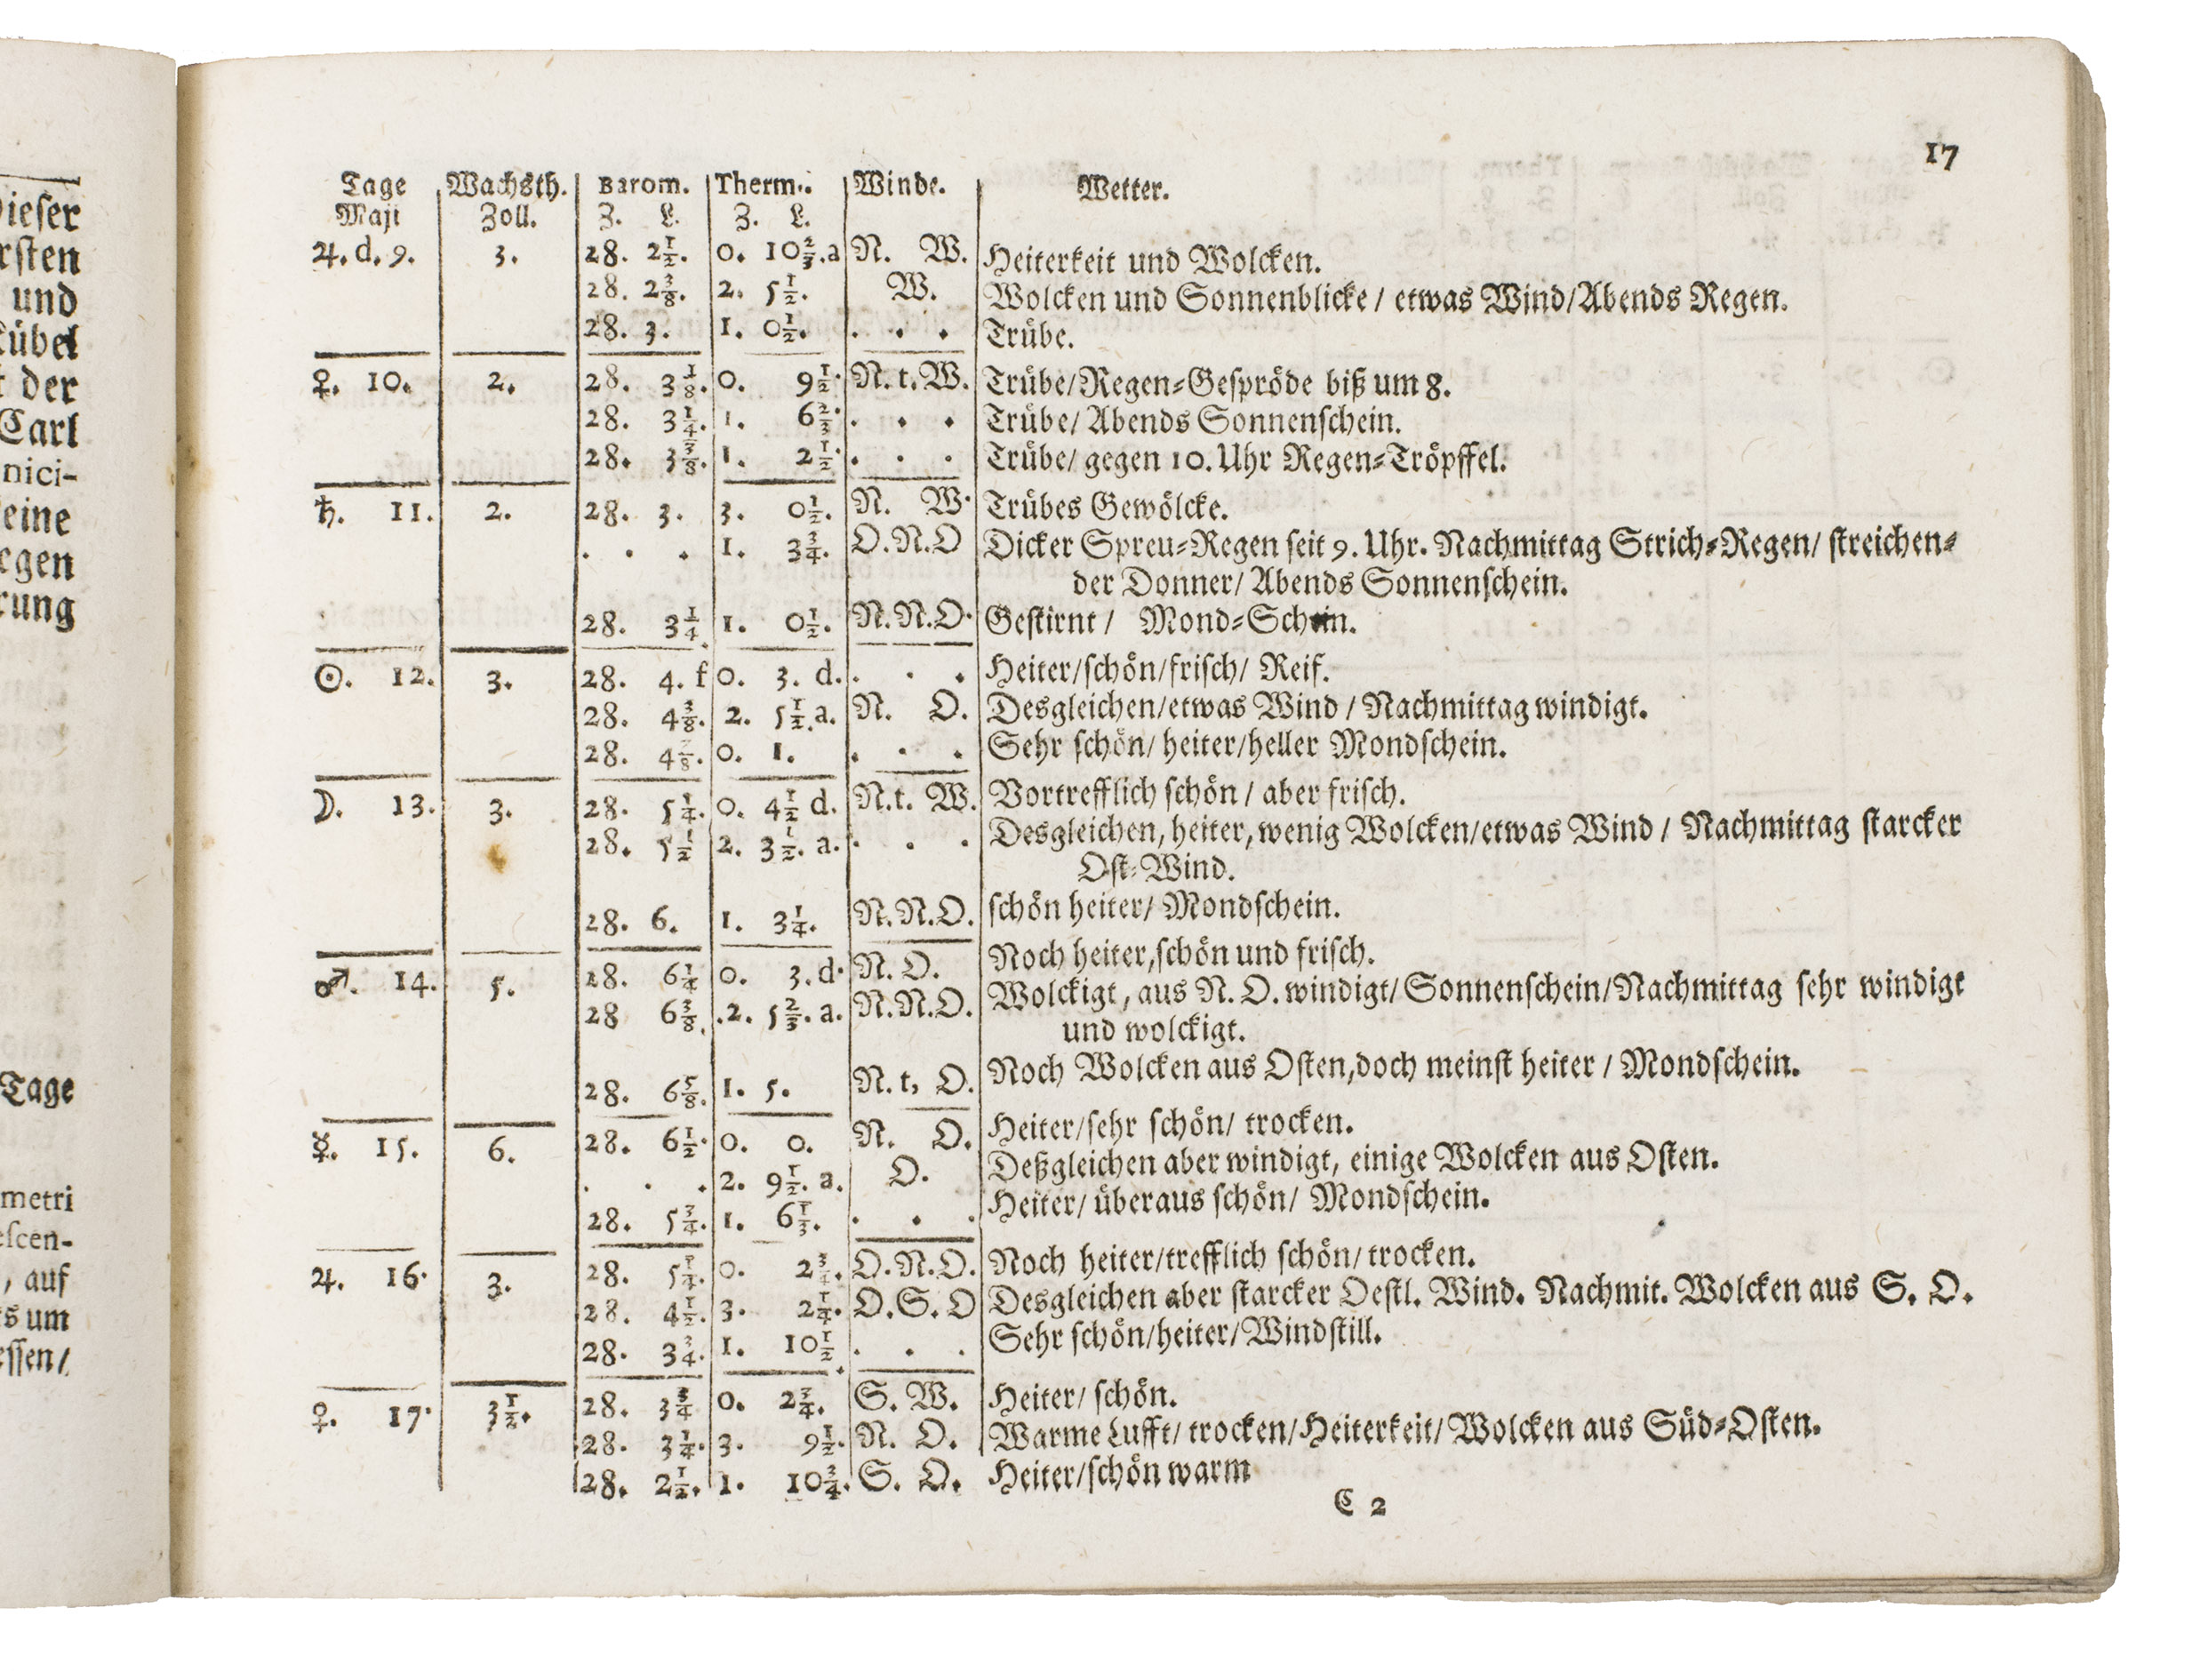 ieser
rsten
und
kübel
t der
Carl
nici-
eine
egen
rung
Tage
metri
escen-
, auf
s um
essen/
17
Tage Wachsth. Barom. Therm. Winde. Wetter.
Maji Zoll. Z. L. Z. L.
♃. d. 9. 3. 28. 2½. 0. 10⅔. a N. W. Heiterkeit und Wolcken.
28. 2⅜. 2. 5½. W. Wolcken und Sonnenblicke / etwas Wind/Abends Regen.
28. 3. 1. 0½. . . . Trübe.
♀. 10. 2. 28. 3⅛. 0. 9½. N. t. W. Trübe/Regen-Gespröde biß um 8.
28. 3¼. 1. 6⅔. . . . Trübe/ Abends Sonnenschein.
28. 3⅜. 1. 2½. . . . Trübe/ gegen 10. Uhr Regen-Tröpffel.
♄. 11. 2. 28. 3. 3. 0½. N. W. Trübes Gewölcke.
. . . 1. 3¾. O.N.O Dicker Spreu-Regen seit 9. Uhr. Nachmittag Strich-Regen/ streichen-
der Donner/ Abends Sonnenschein.
28. 3¼. 1. 0½. N.N.O. Gestirnt / Mond-Schein.
☉. 12. 3. 28. 4. f 0. 3. d. . . . Heiter/schön/frisch/ Reif.
28. 4⅜. 2. 5½. a. N. O. Desgleichen/etwas Wind / Nachmittag windigt.
28. 4⅞. 0. 1. . . . Sehr schön/ heiter/heller Mondschein.
☽. 13. 3. 28. 5¼. 0. 4½ d. N.t. W. Vortrefflich schön / aber frisch.
28. 5½ 2. 3½. a. . . . Desgleichen, heiter, wenig Wolcken/etwas Wind / Nachmittag starcker
Ost-Wind.
28. 6. 1. 3¼. N.N.O. schön heiter/ Mondschein.
♂. 14. 5. 28. 6¼ 0. 3. d. N. O. Noch heiter,schön und frisch.
28 6⅜. .2. 5⅔. a. N.N.O. Wolckigt, aus N. O. windigt/Sonnenschein/Nachmittag sehr windigt
und wolckigt.
28. 6⅝. 1. 5. N. t, O. Noch Wolcken aus Osten,doch meinst heiter / Mondschein.
☿. 15. 6. 28. 6½. 0. 0. N. O. Heiter/sehr schön/ trocken.
. . . 2. 9½. a. O. Deßgleichen aber windigt, einige Wolcken aus Osten.
28. 5¾. 1. 6⅓. . . . Heiter/ überaus schön/ Mondschein.
♃. 16. 3. 28. 5¼. 0. 2¾. O.N.O. Noch heiter/trefflich schön/ trocken.
28. 4½. 3. 2¼. O.S.O Desgleichen aber starcker Oestl. Wind. Nachmit. Wolcken aus S. O.
28. 3¾. 1. 10½. . . . Sehr schön/heiter/Windstill.
♀. 17. 3½. 28. 3¾ 0. 2¾. S. W. Heiter/ schön.
28. 3¼. 3. 9½. N. O. Warme Lufft/ trocken/Heiterkeit/Wolcken aus Süd-Osten.
28. 2½. 1. 10¾. S. O. Heiter/schön warm
C 2